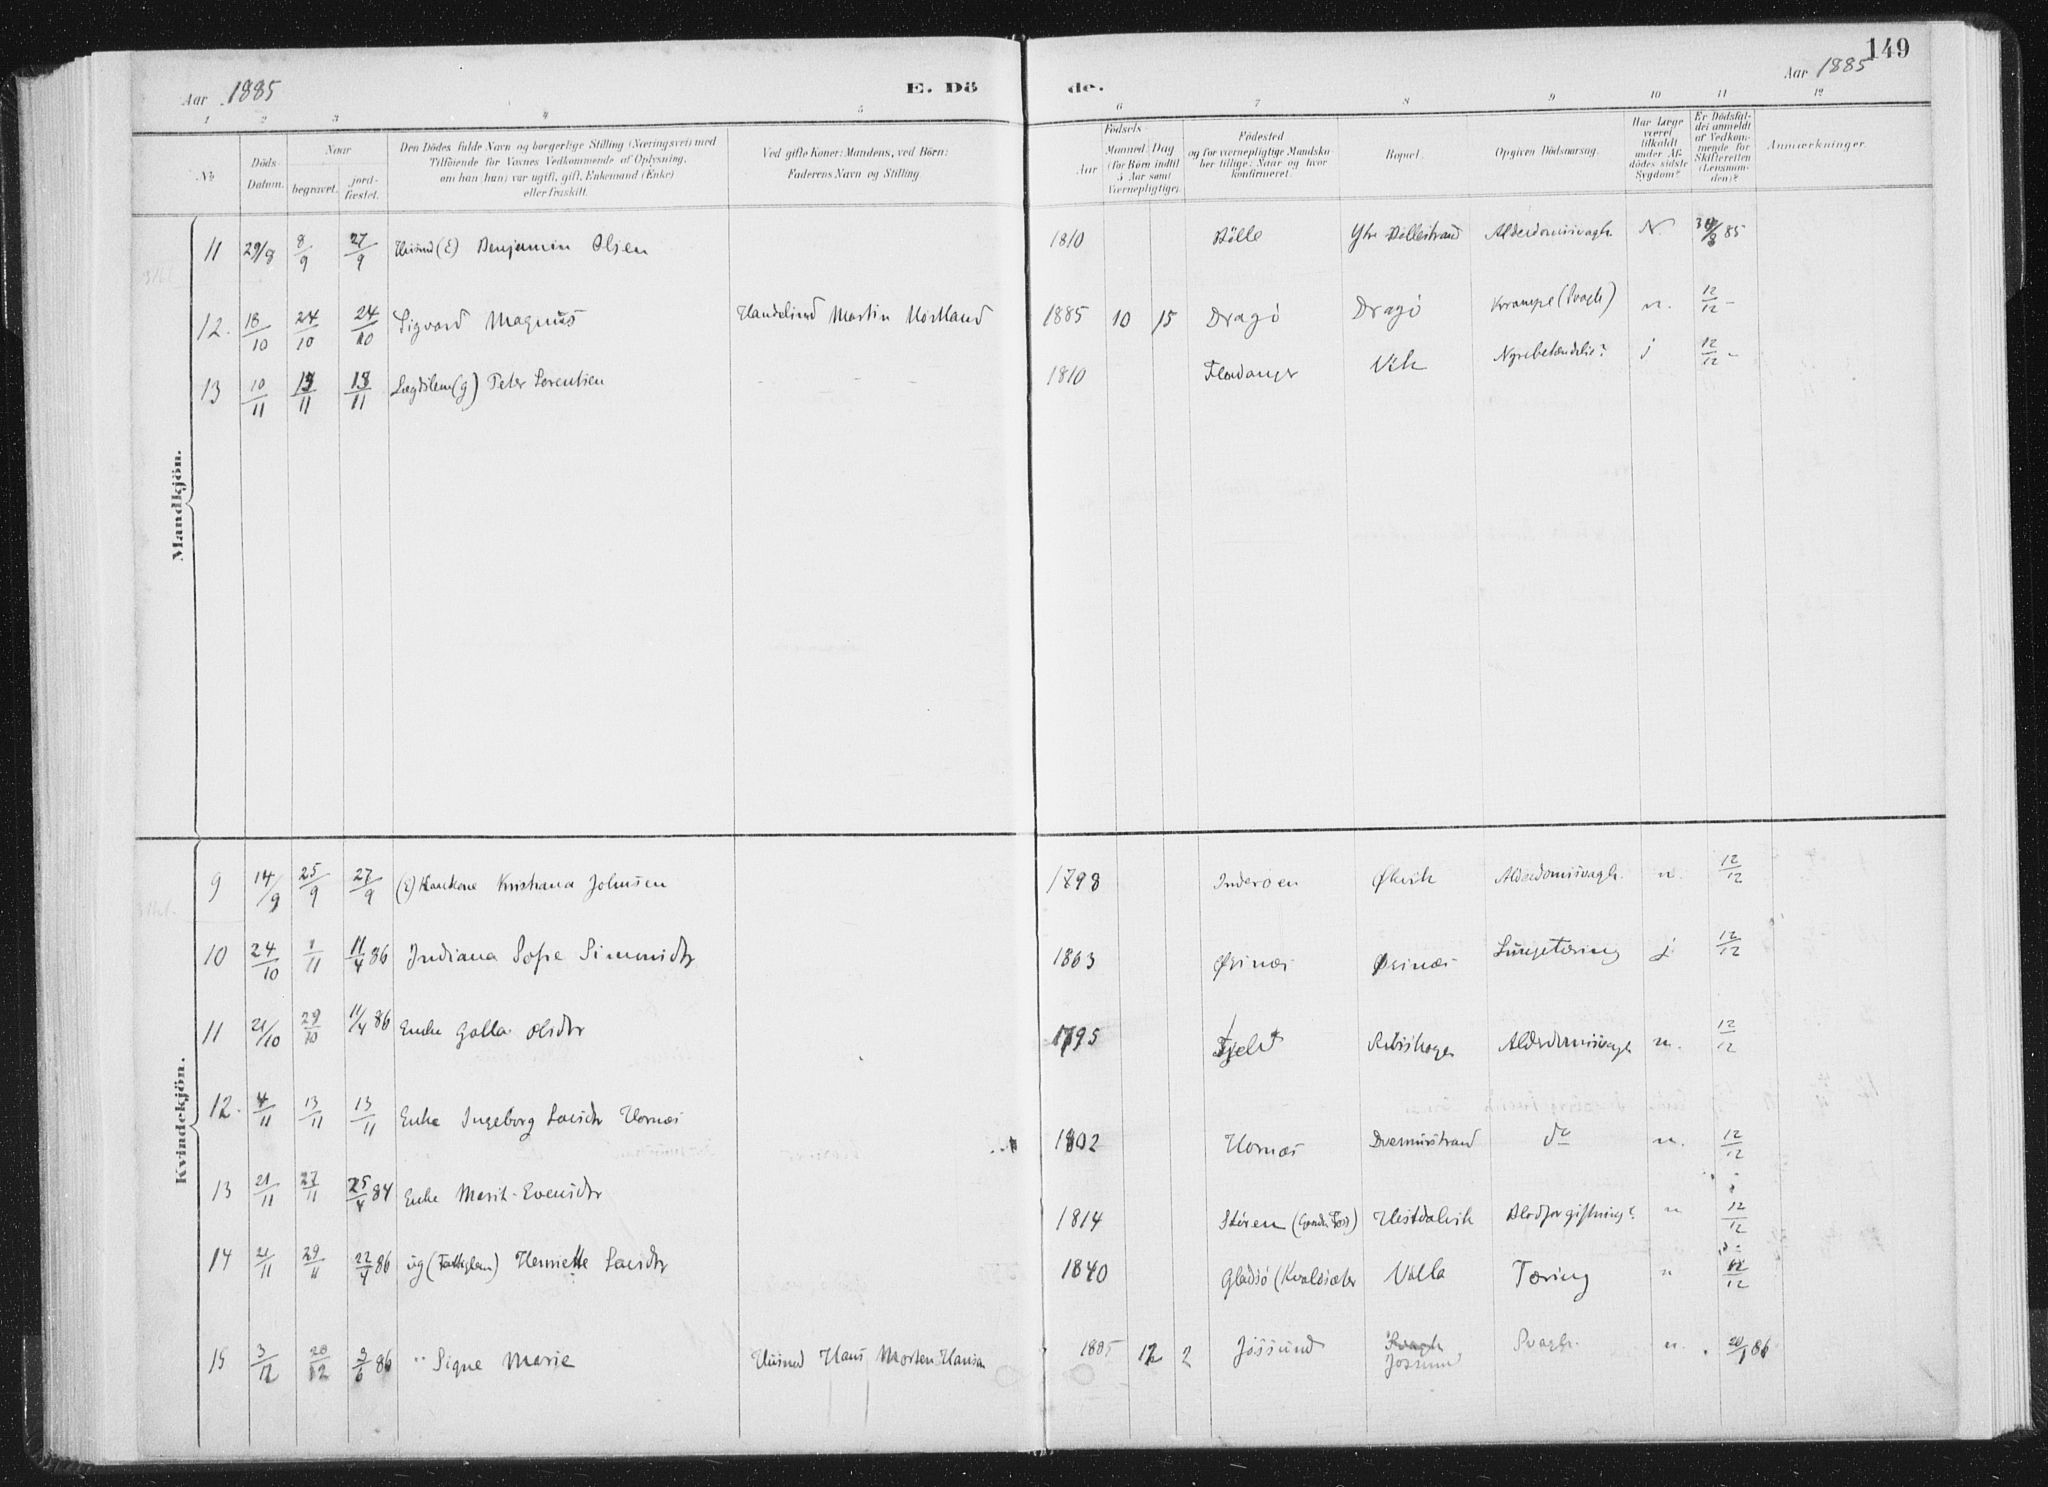 149
Aar 1885
E. Dö
de.
Aar 1885
1 2 3 4 5 6 7 8 9 10 11 12
No
Döds-
Datum.
Naar
begravet.
jord-
fæstet.
Den Dödes fulde Navn og borgerlige Stilling (Næringsvei) med
Tilföiende for Voxnes Vedkommende af Oplysning,
om han (hun) var ugift, gift, Enkemand (Enke)
eller fraskilt.
Ved gifte Koner: Mandens, ved Börn:
Faderens Navn og Stilling.
Födsels-
Aar
Maaned Dag
(for Börn indtil
5 Aar samt
Værnepligtige)
Födested
og for værnepligtige Mandska-
ber tillige: Naar og hvor
konfirmeret.
Bopæl.
Opgiven Dödsaarsag.
Har Læge
været
tilkaldt
under Af-
dödes sidste
Sygdom?
Er Dödsfal-
det anmeldt
af Vedkom-
mende for
Skifteretten
(Lensman-
den)?
Anmærkninger.
Mandkjön.
11 29/8 8/9 27/9 Huusmd (E) Benjamin Olsen 1810 Bölle Ytre Böllestrand Alderdomssvagh. N. 85
12. 18/10 24/10 24/10 Sigvard Magnus Handelsmd Martin Mortland 1885 10 15 Dragö Dragö Krampe (Svagh) n. 12/12 -
13 10/11 18/11 18/11 Lægdslem (g) Peter Lorentsen - - - 1810 Fladanger Vik Nyrebetændelse? j 12/12 -
Kvindekjön.
9 14/9 25/9 27/9 (E) Kristiana Johnsen 1798 Inderöen Ølvik Alderdomssvagh. n. 12/12
10 24/10 1/11 11/4 86 Indiana Sofie Simonsdtr 1863 Øsinæs Øsinæs Lungetæring j. 12/12
11 21/10 29/10 11/4 86 Enke Golla Olsdtr 1795 Alderdomssvagh n. 12/12
12. 4/11 13/11 13/11 Enke Ingeborg Larsdtr Hornæs 1802 Hornæs do n. 12/12
13 21/11 27/11 25/4 84 Enke Marit Evensdtr 1814 Stören Hestdalvik Blodforgiftning? n 12/12
14 21/11 29/11 22/4 86 ug (Fattiglem) Henriette Larsdtr 1840 Gladsö (Kvalsæter Volla Tæring n 12/12
15 3/12 20/12 9/6 86 " Signe Marie Huusmd Hans Morten Hansen 1885 12 2 Jössund Svagh Svagh. n. 20/1 86
Jossund